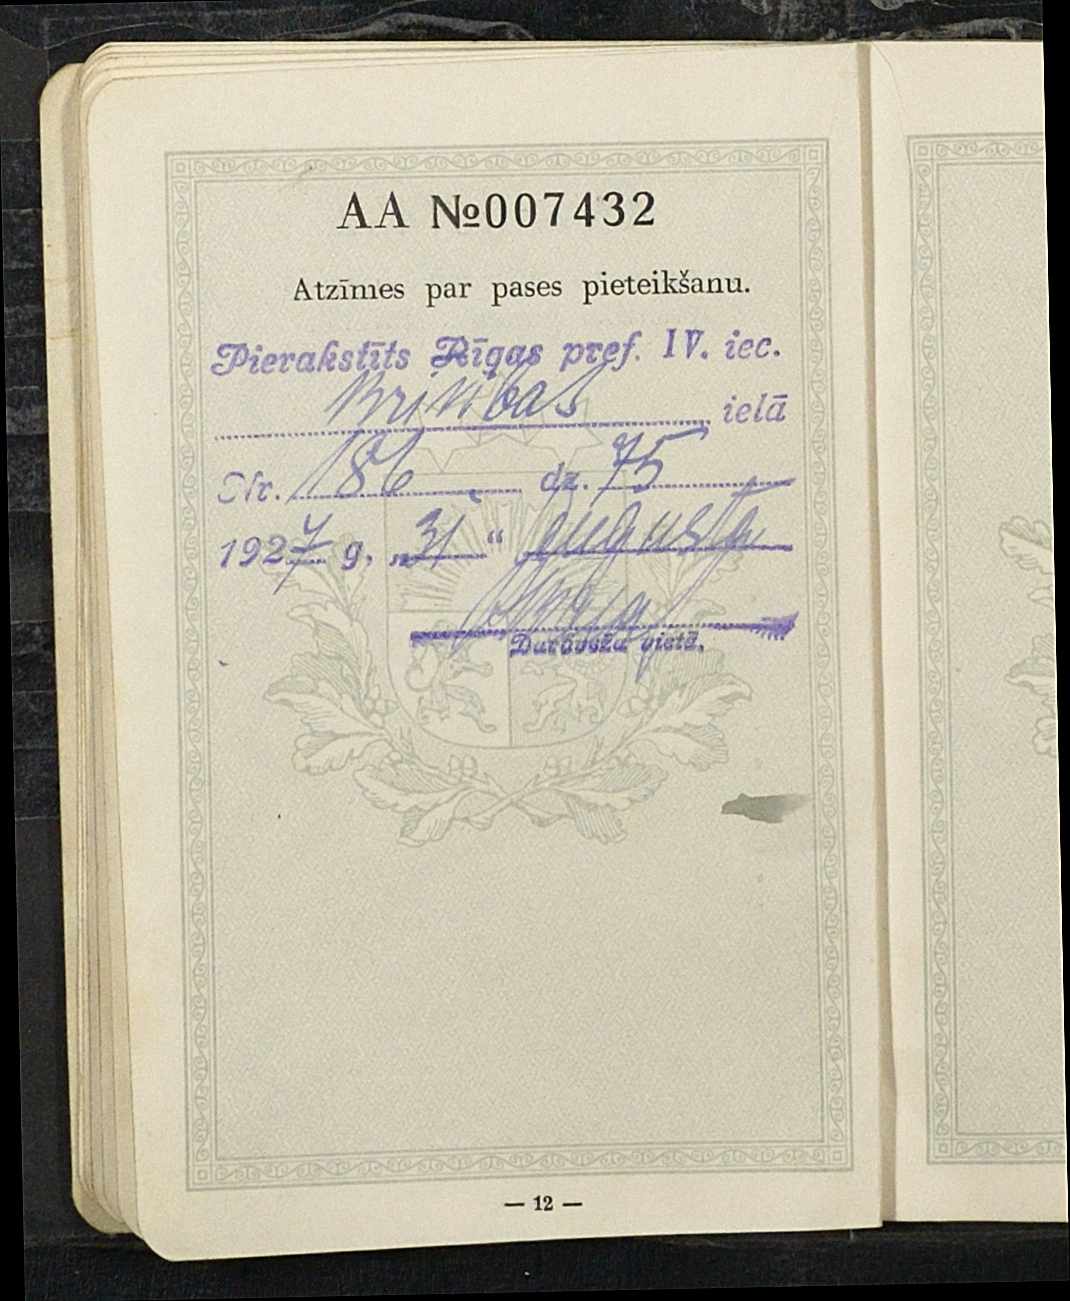 AA №007432
Atzīmes par pases pieteikšanu.
Pierakstīts Rīgas pref. IV. iec.
Brīvības ielā
Nr. 186 dz. 75
1927 g. „31“ augusta
Darāvedža vietā.
— 12 —